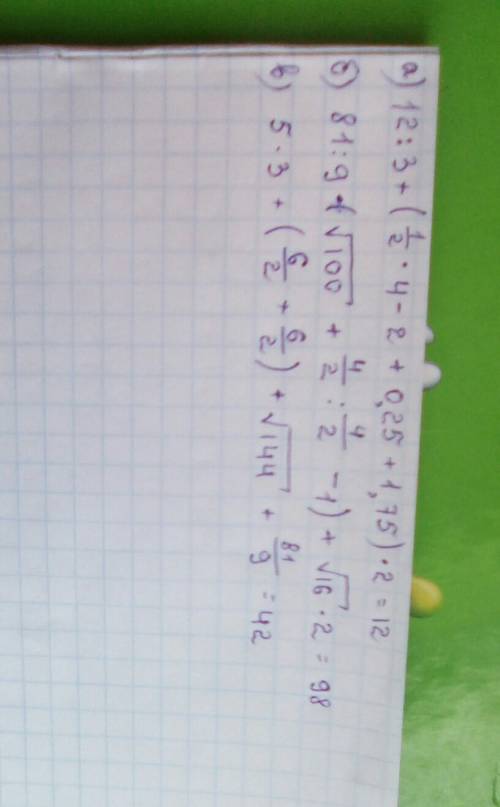 а) 12:3 + (1/2 · 4 - 2 + 0,25 + 1,75) · 2 = 12
б) 81:9 · (√100 + 4/2 : 4/2 - 1) + √16 · 2 = 98
в) 5 · 3 + (6/2 + 6/2) + √144 + 81/9 = 42